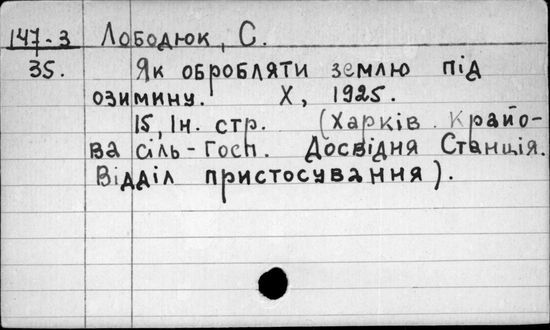 147-3 Лободюк, С.
35. Як обробляти землю під
озимину. Х, 1925.
15, Ін. стр. (Харків. Крайо-
ва сіль-Госп. Досвідня Станція.
Відділ пристосування).